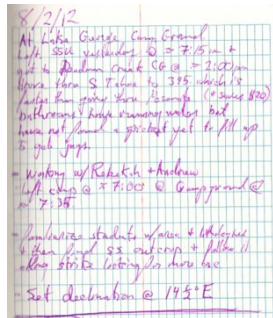 8/2/12
At Lake George Camp Ground
Left SSU yesterday @ ≈ 7:15 am &
got to Camp Ground @ ≈ 2:00pm
Drove thru S Tahoe to 395 which is
faster than going thru
bathrooms have running water but
have not found a spicket yet to fill up
5 gal jugs.
- Working w/ Rebekah + Andrew
Left camp @ ≈ 7:00 @ Campground @
≈ 7:35
- Familiarize students w/ area +
+ then find ss outcrop + follow it
along strike looking for more
- Set declination @ 14½° E